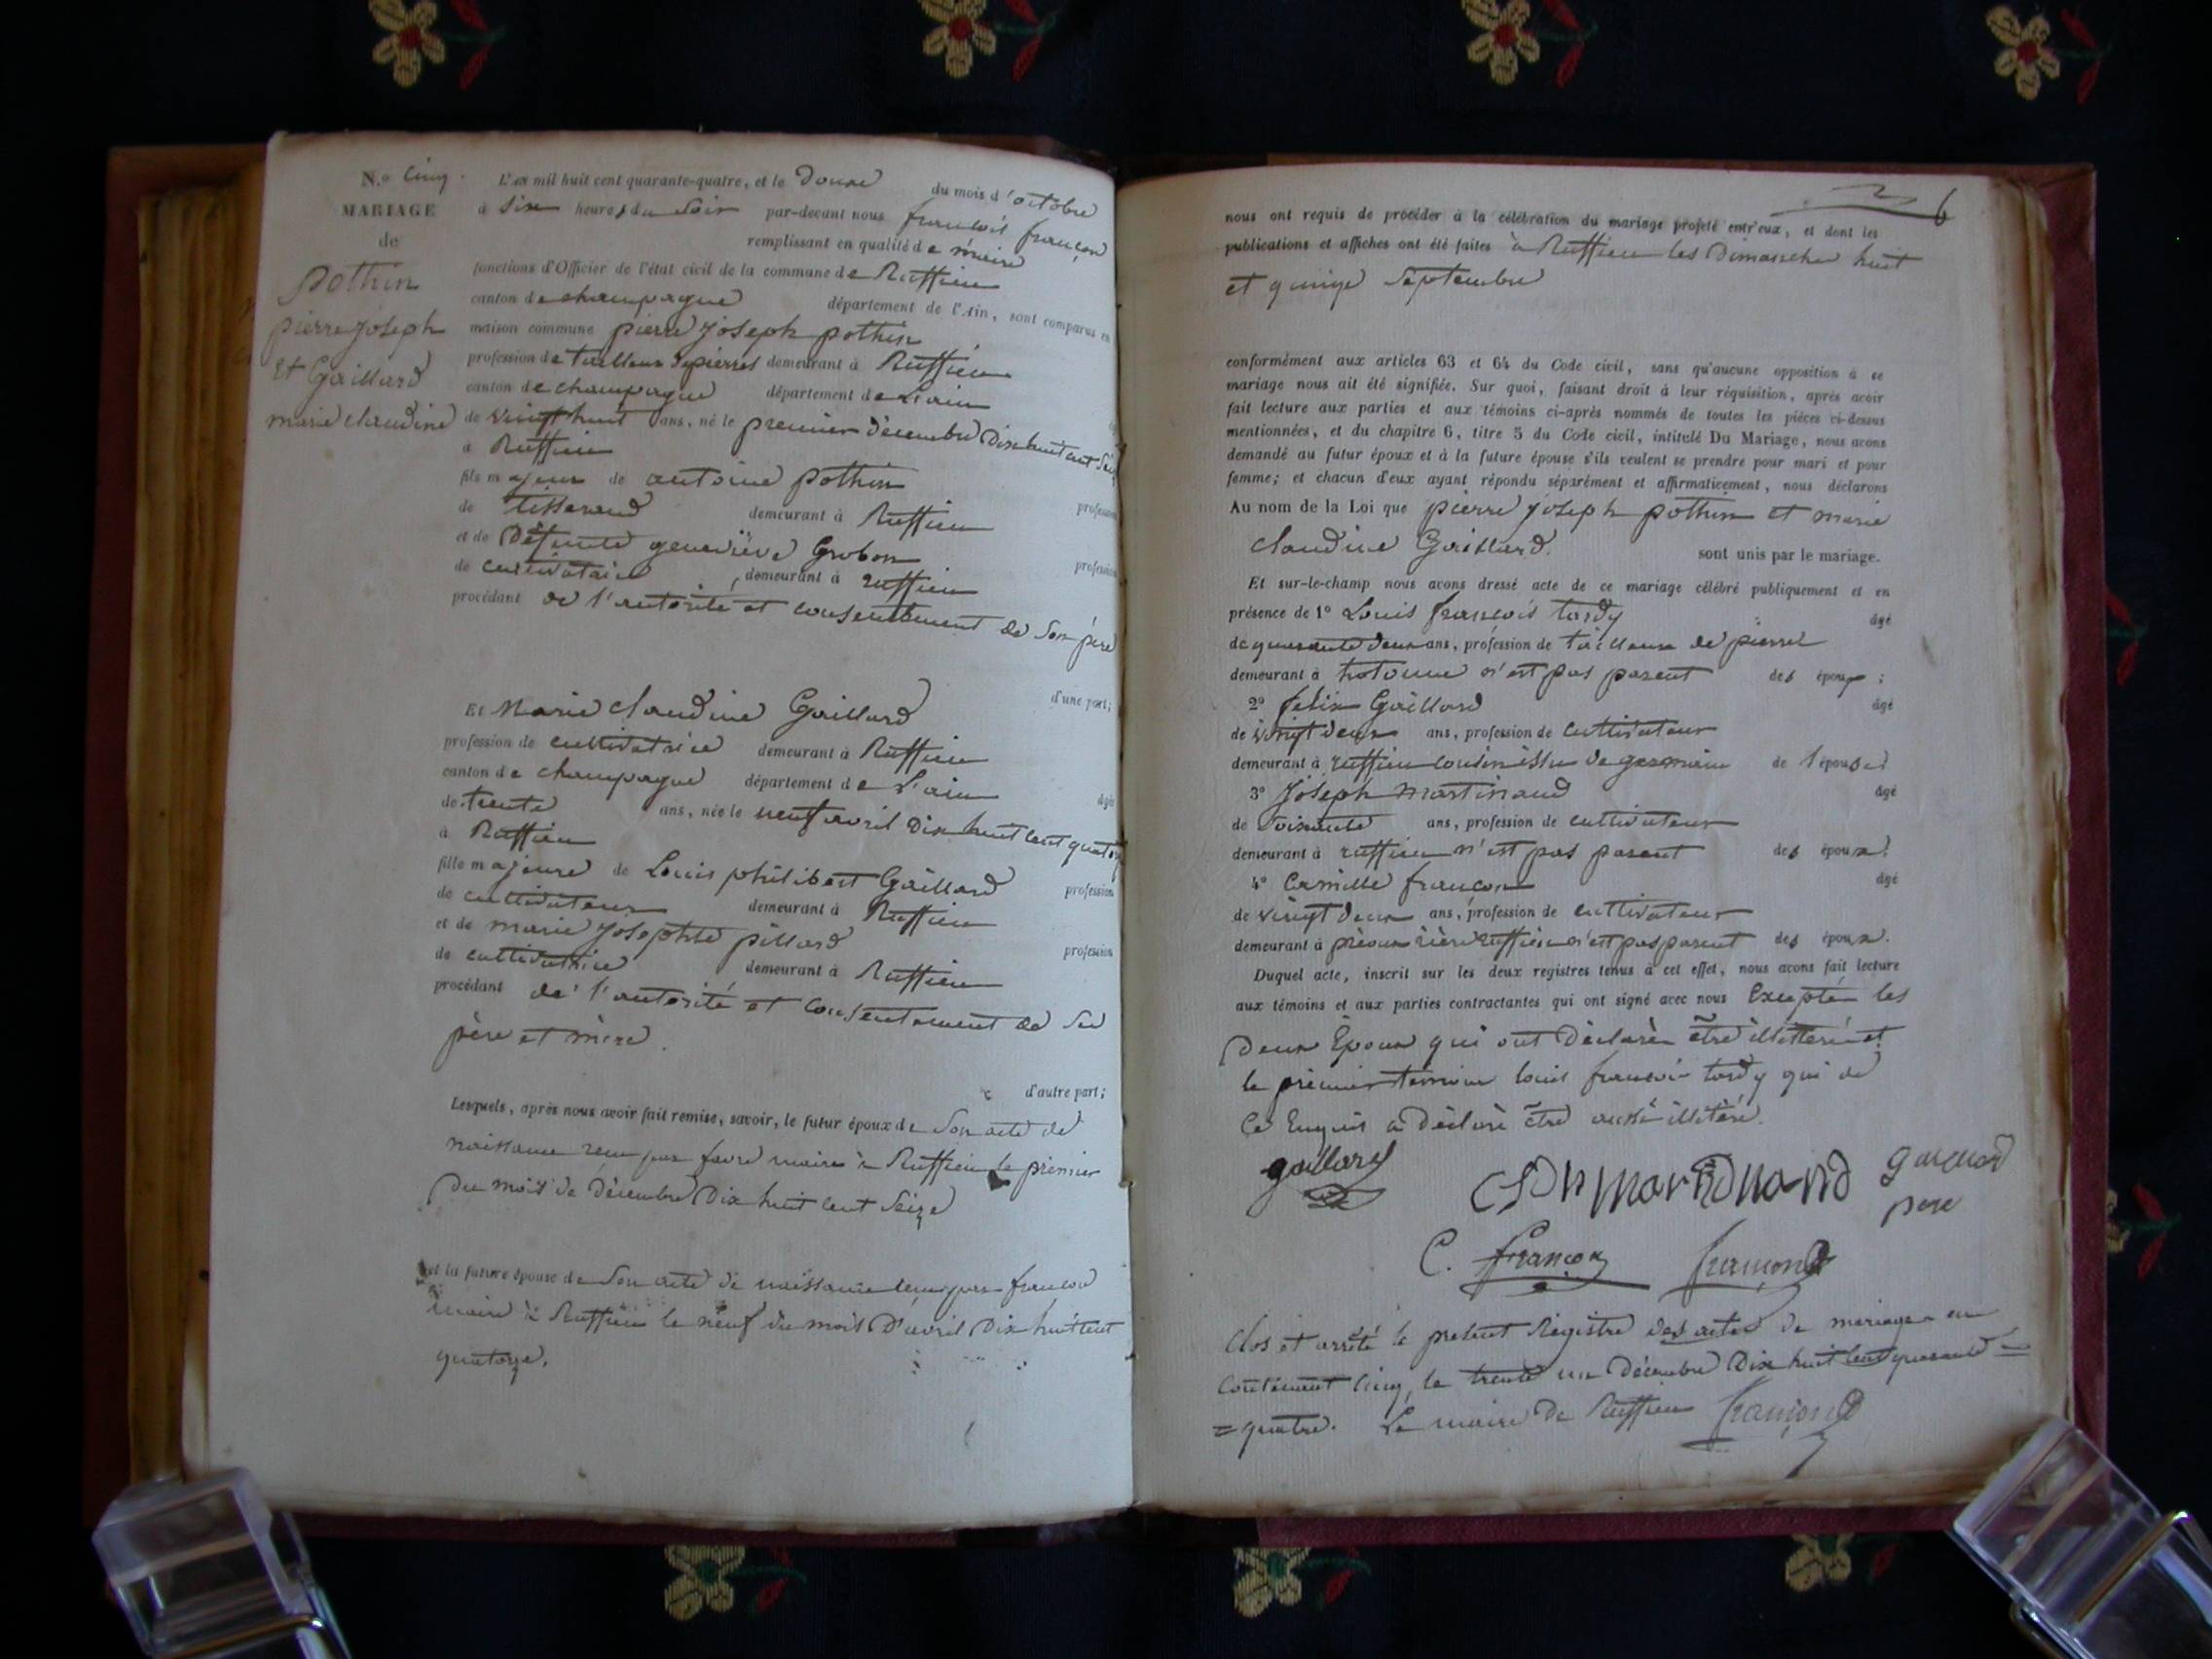 N.º Cinq.
MARIAGE
de
pothin
pierre joseph
Et Gaillard
marie claudine
L'an mil huit cent quarante-quatre, et le Douze du mois d'octobre
à Six heures du Soir par-devant nous françois françon
remplissant en qualité de maire
fonctions d'Officier de l'état civil de la commune de Ruffieu
canton de champagne département de l'Ain, sont comparus en
maison commune pierre joseph pothin
profession de tailleur de pierres demeurant à Ruffieu
canton de champagne département de L'ain
de vingt huit ans, né le premier décembre Dix huit cent Seize
à Ruffieu
fils majeur de antoine pothin profession
de tisserand demeurant à Ruffieu
et de Défunte geneviève Grobon profession
de cultivatrice demeurant à ruffieu
procédant de l'autorité et consentement de Son père
d'une part;
Et Marie claudine Gaillard
profession de cultivatrice demeurant à Ruffieu
canton de champagne département de L'ain âgée
de trente ans, née le neuf avril Dix huit cent quatorze
à Ruffieu
fille majeure de Louis philibert Gaillard profession
de cultivateur demeurant à Ruffieu
et de marie Josephte pillard profession
de cultivatrice demeurant à Ruffieu
procédant de l'autorité et consentement de Ses
père et mère.
d'autre part;
Lesquels, après nous avoir fait remise, savoir, le futur époux de Son acte de
naissance reçu par favre maire à Ruffieu le premier
Du mois de décembre Dix huit cent Seize
et la future épouse de Son acte de naissance reçu par françon
maire à Ruffieu le neuf du mois D'avril Dix huit cent
quatorze.
6
nous ont requis de procéder à la célébration du mariage projeté entr'eux, et dont les
publications et affiches ont été faites à Ruffieu les Dimanches huit
et quinze Septembre
conformément aux articles 63 et 64 du Code civil, sans qu'aucune opposition à ce
mariage nous ait été signifiée. Sur quoi, faisant droit à leur réquisition, après avoir
fait lecture aux parties et aux témoins ci-après nommés de toutes les pièces ci-dessus
mentionnées, et du chapitre 6, titre 5 du Code civil, intitulé Du Mariage, nous avons
demandé au futur époux et à la future épouse s'ils veulent se prendre pour mari et pour
femme; et chacun d'eux ayant répondu séparément et affirmativement, nous déclarons
Au nom de la Loi que pierre joseph pothin et marie
claudine Gaillard. sont unis par le mariage.
Et sur-le-champ nous avons dressé acte de ce mariage célébré publiquement et en
présence de 1º Louis françois tardy âgé
de quarante deux ans, profession de tailleur de pierres
demeurant à hotonne n'est pas parent des époux;
2º felix Gaillard âgé
de vingt deux ans, profession de cultivateur
demeurant à ruffieu cousin issu de germain de l'épouse
3º Joseph martinand âgé
de soixante ans, profession de cultivateur
demeurant à ruffieu n'est pas parent des époux.
4º Camille françon âgé
de vingt deux ans, profession de cultivateur
demeurant à ruffieu n'est pas parent des époux.
Duquel acte, inscrit sur les deux registres tenus à cet effet, nous avons fait lecture
aux témoins et aux parties contractantes qui ont signé avec nous Excepté les
Deux Epoux qui ont Déclarés être illettérés et
le premier temoin louis françois tardy qui de
Ce Enquis a Déclaré être aussi illitéré.
gaillard martinand gaillard
pere
C. françon françon
Clos et arrêté le présent Registre des actes de mariages en
Contenant cinq, le trente un Décembre Dix huit cent quarante =
= quatre. Le maire de Ruffieu françon